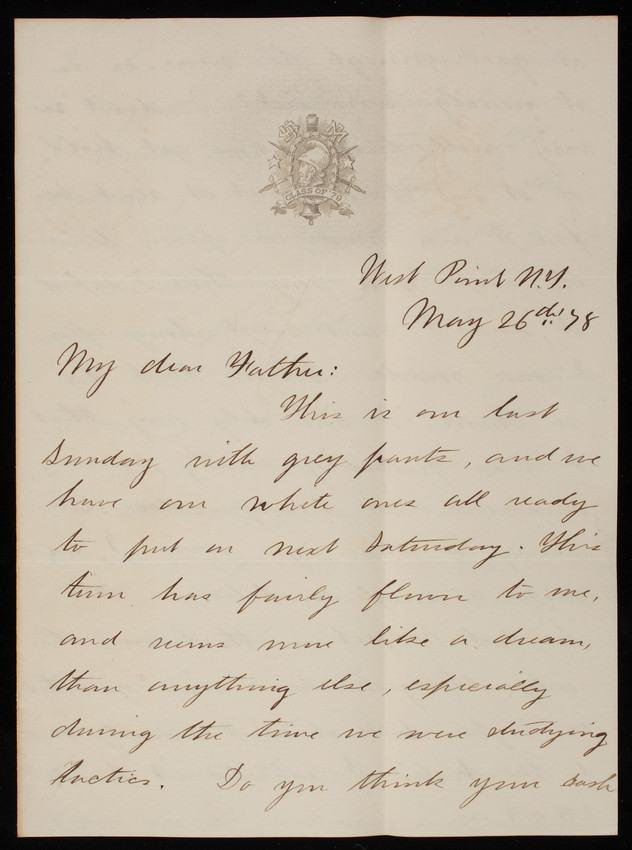 U S M A
CLASS OF '79
West Point N.Y.
May 26th '78
My dear Father:
This is our last
Sunday with grey pants, and we
have our white ones all ready
to put on next Saturday. This
term has fairly flown to me,
and seems more like a dream,
than anything else, especially
during the time we were studying
tactics. Do you think your sash